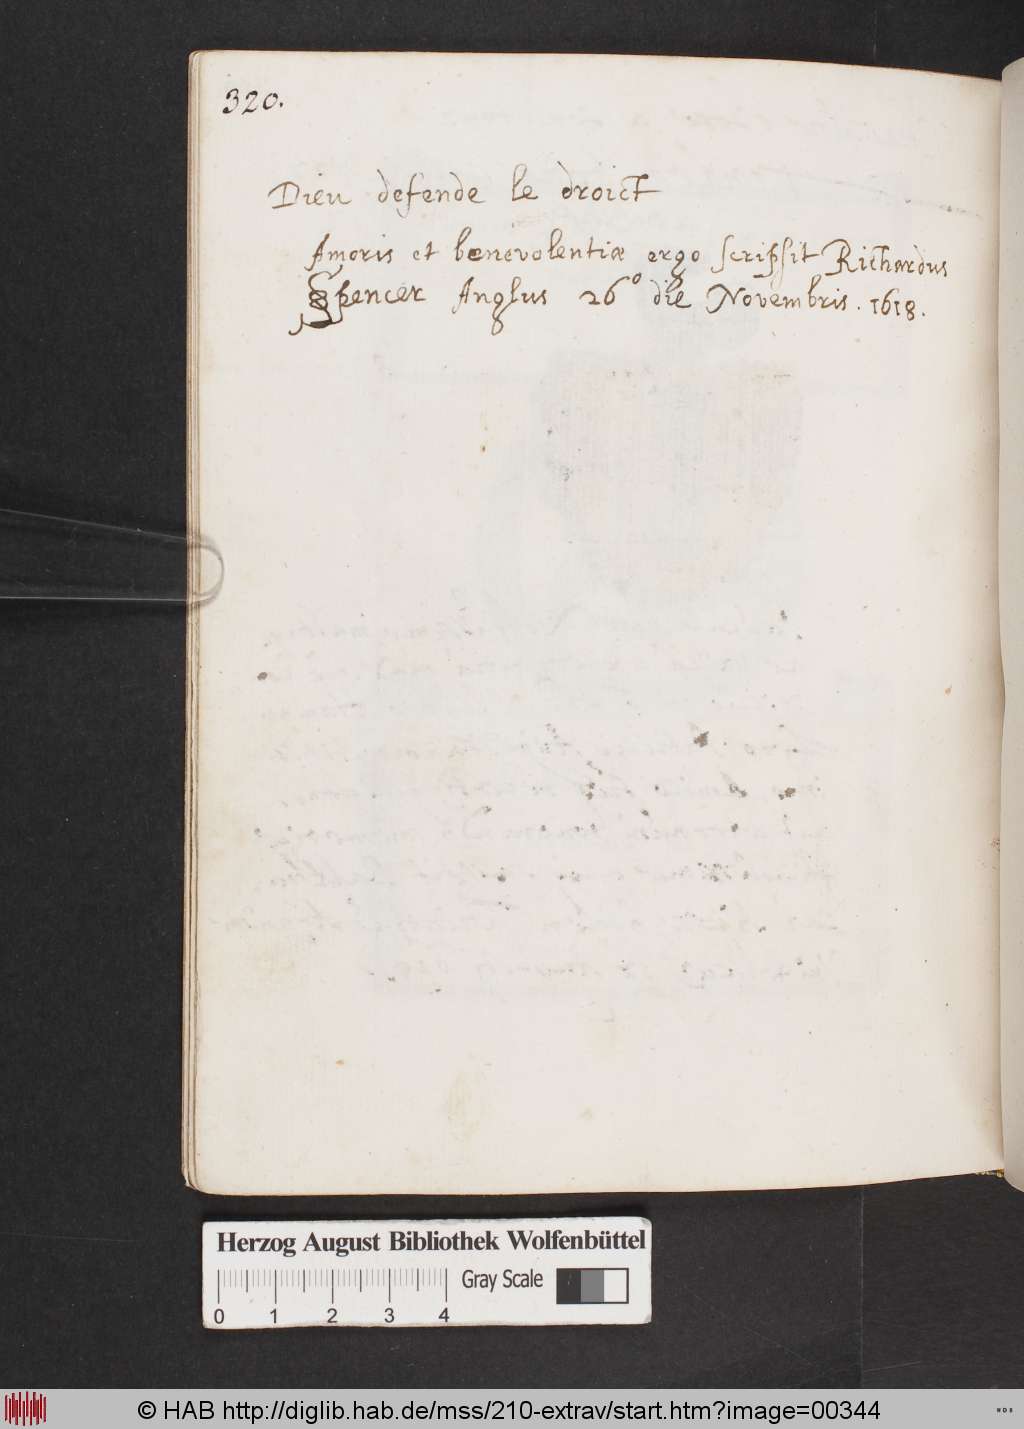 320.
Dieu defende le droict
Amoris et benevolentiæ ergo scripsit Richardus
Spencer Anglus 26° die Novembris. 1618.
Herzog August Bibliothek Wolfenbüttel
Gray Scale
0 1 2 3 4
© HAB http://diglib.hab.de/mss/210-extrav/start.htm?image=00344